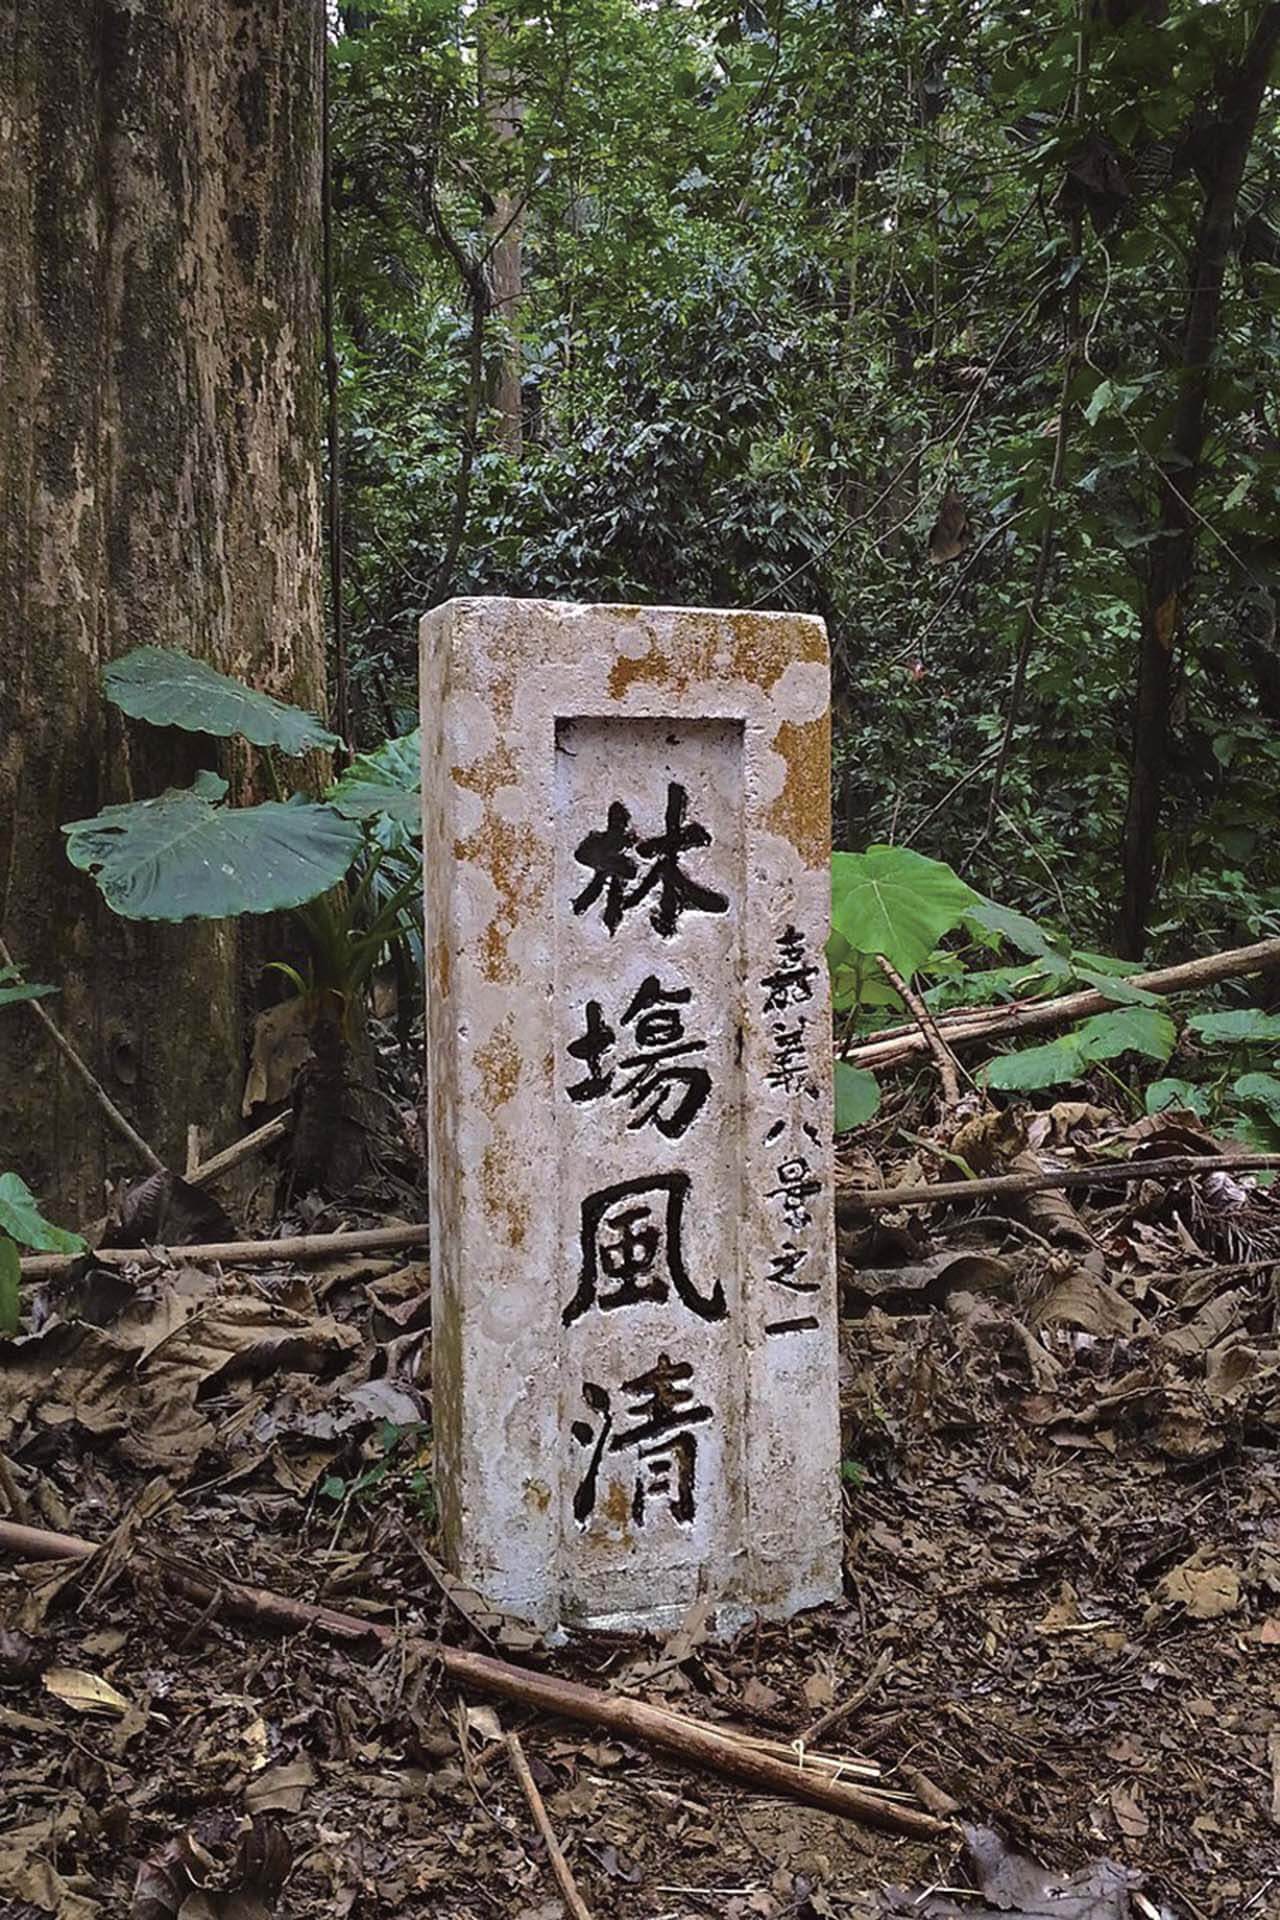 嘉義八景之一
林場風清